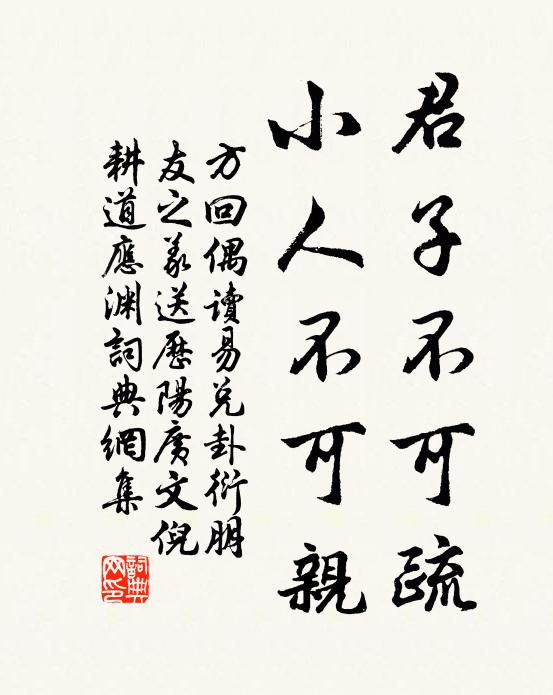 君子不可疏
小人不可親
方回偶讀易兌卦衍朋
友之義送歷陽廣文倪
耕道應渊詞典網集
詞典
网印